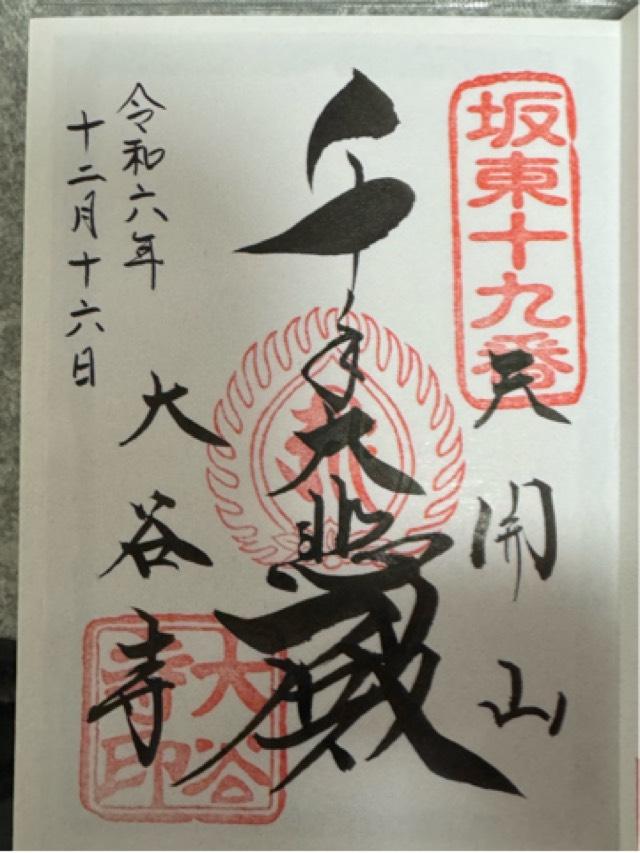 坂東十九番
天開山
千手大悲殿
大谷寺
大谷寺印
令和六年
十二月十六日